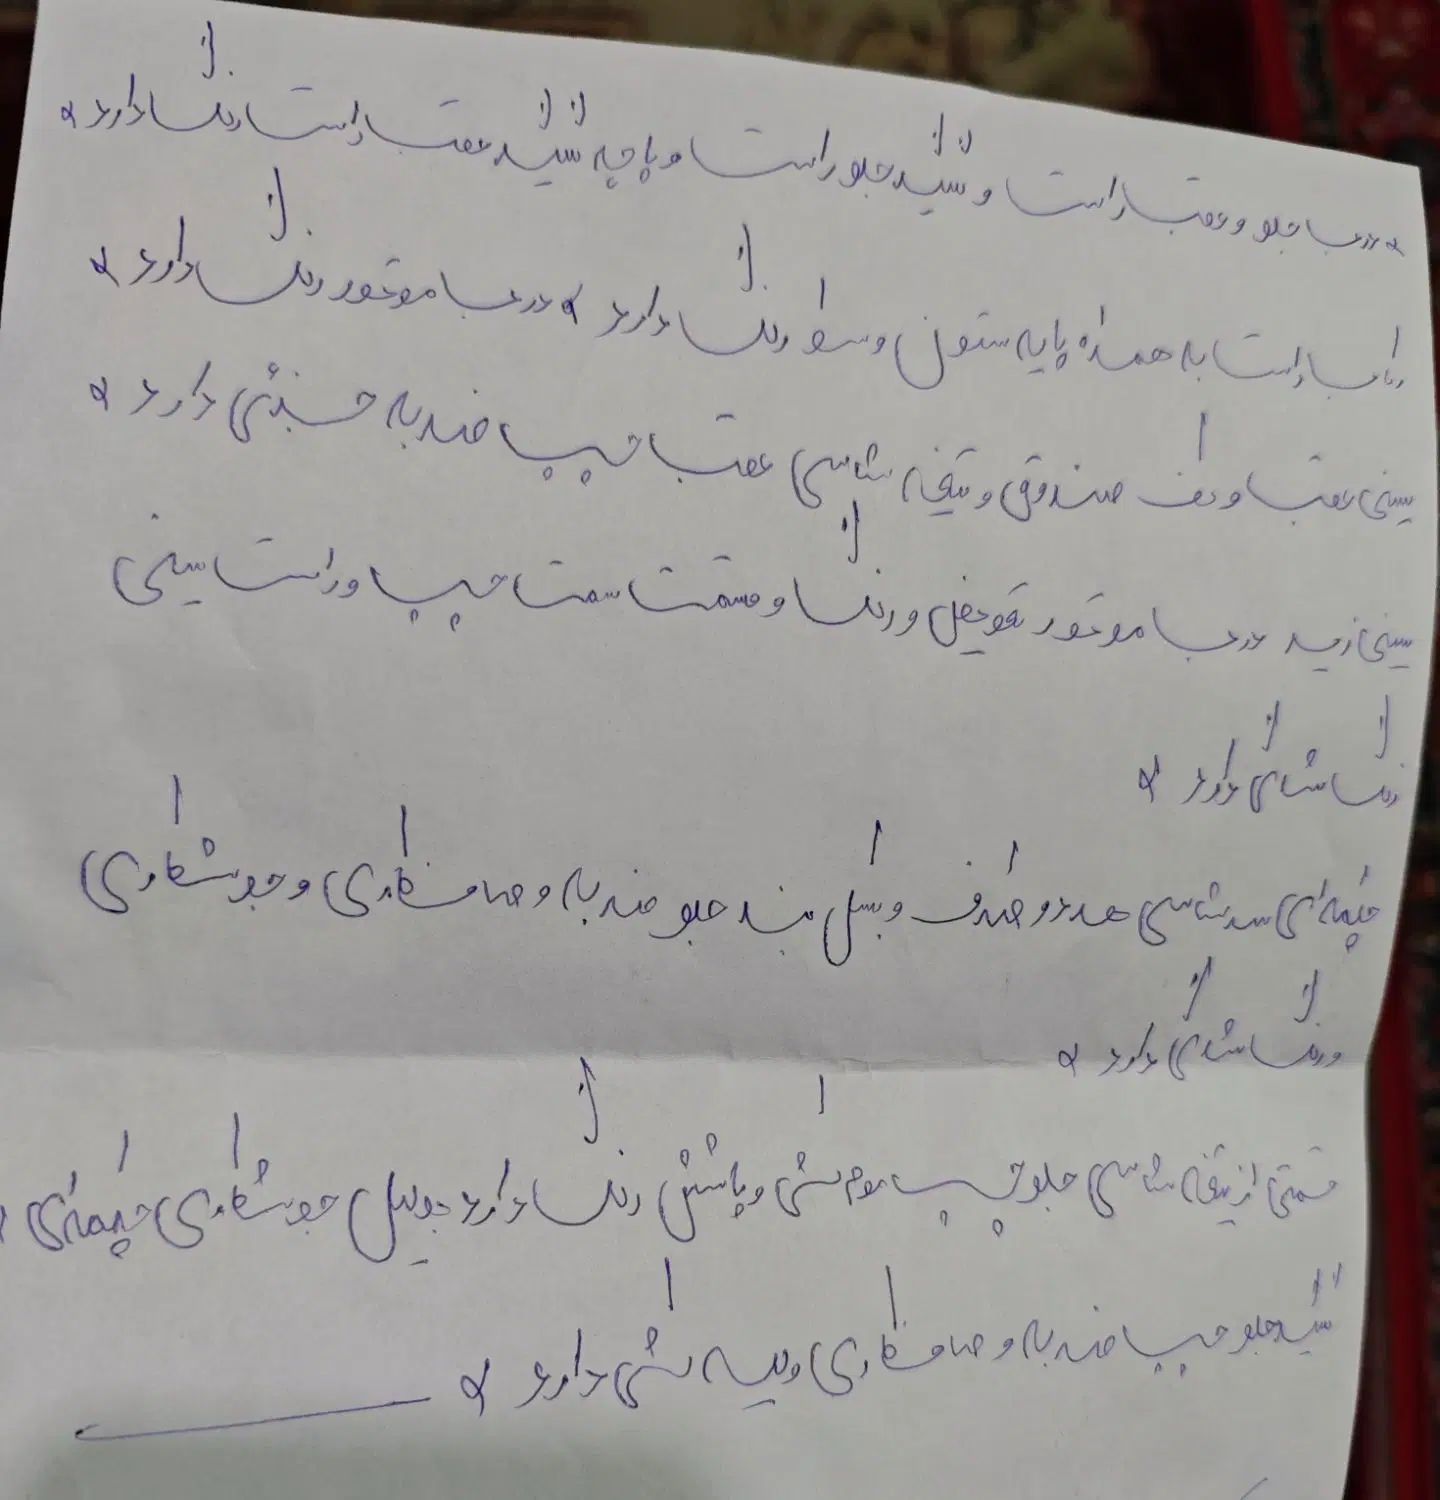 * درب جلو و عقب راست و گلگیر جلو راست و پاچه گلگیر عقب راست رنگ دارد *
رکاب راست به همراه پایه ستون وسط رنگ دارد * درب موتور رنگ دارد *
سینی عقب و کف صندوق و تیغه شاسی عقب چپ ضربه جزئی دارد *
سینی زیر درب موتور تعویض و رنگ و قسمت سمت چپ و راست سینی
رنگ شدگی دارد *
چکمه‌ای سرشاسی هر دو طرف و بغل بند جلو ضربه و صافکاری و جوشکاری
و رنگ شدگی دارد *
قسمتی از تیغه شاسی جلو چپ موم کشی و پاشش رنگ دارد جوشکاری چکمه‌ای
گلگیر جلو چپ ضربه و صافکاری و لیسه کشی دارد *